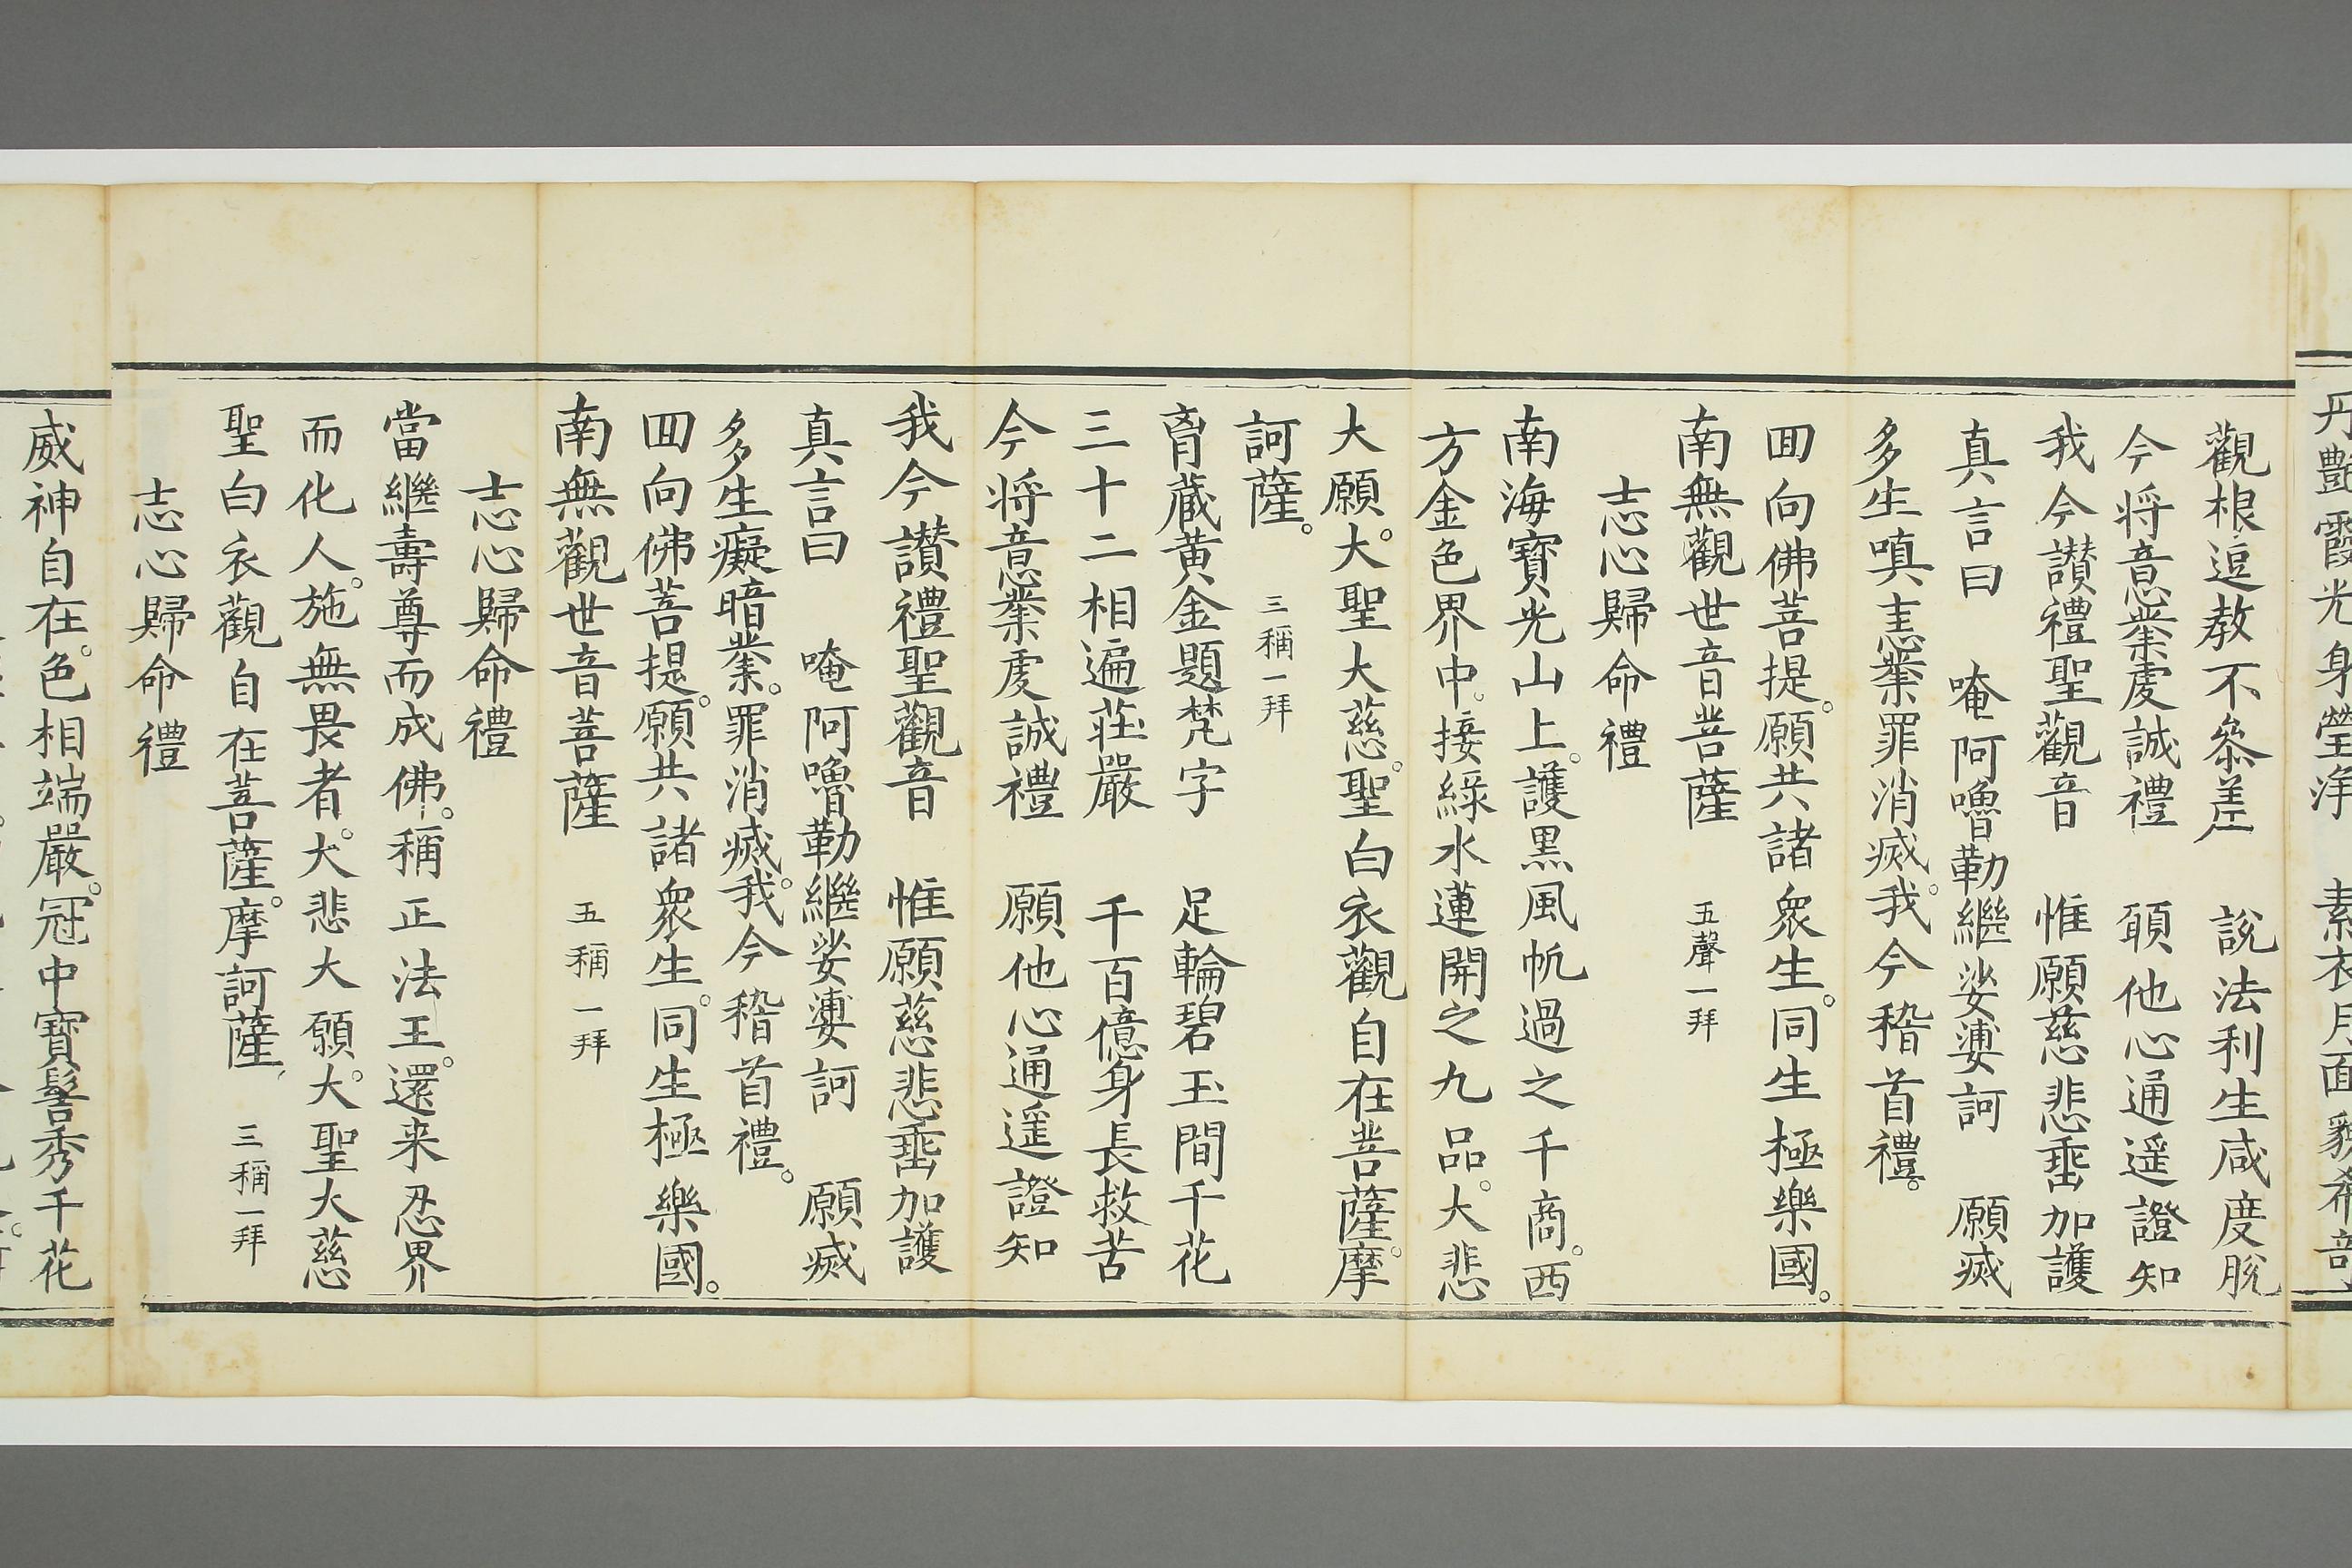 丹艶霞光身瑩淨　素衣月面貌希竒
觀根逗敎不叅差　說法利生咸度脫
今將意業虔誠禮　願他心通遥證知
我今讃禮聖觀音　惟願慈悲垂加護
真言曰　唵阿嚕勒繼娑婆訶　願滅
多生嗔恚業罪消滅。我今稽首禮。
回向佛菩提。願共諸衆生。同生極樂國。
南無觀世音菩薩　五聲一拜
志心歸命禮
南海寶光山上。護黒風帆過之千商。西
方金色界中。接綠水蓮開之九品。大悲
大願。大聖大慈。聖白衣觀自在菩薩。摩
訶薩。　三稱一拜
胷藏黄金題梵字　足輪碧玉間千花
三十二相遍莊嚴　千百億身長救苦
今將意業虔誠禮　願他心通遥證知
我今讃禮聖觀音　惟願慈悲垂加護
真言曰　唵阿嚕勒繼娑婆訶　願滅
多生癡暗業。罪消滅。我今稽首禮。
回向佛菩提。願共諸衆生。同生極樂國。
南無觀世音菩薩　五稱一拜
志心歸命禮
當繼壽尊而成佛。稱正法王。還来忍界
而化人。施無畏者。大悲大願。大聖大慈
聖白衣觀自在菩薩。摩訶薩　三稱一拜
志心歸命禮
威神自在。色相端嚴。冠中寶髻秀千花